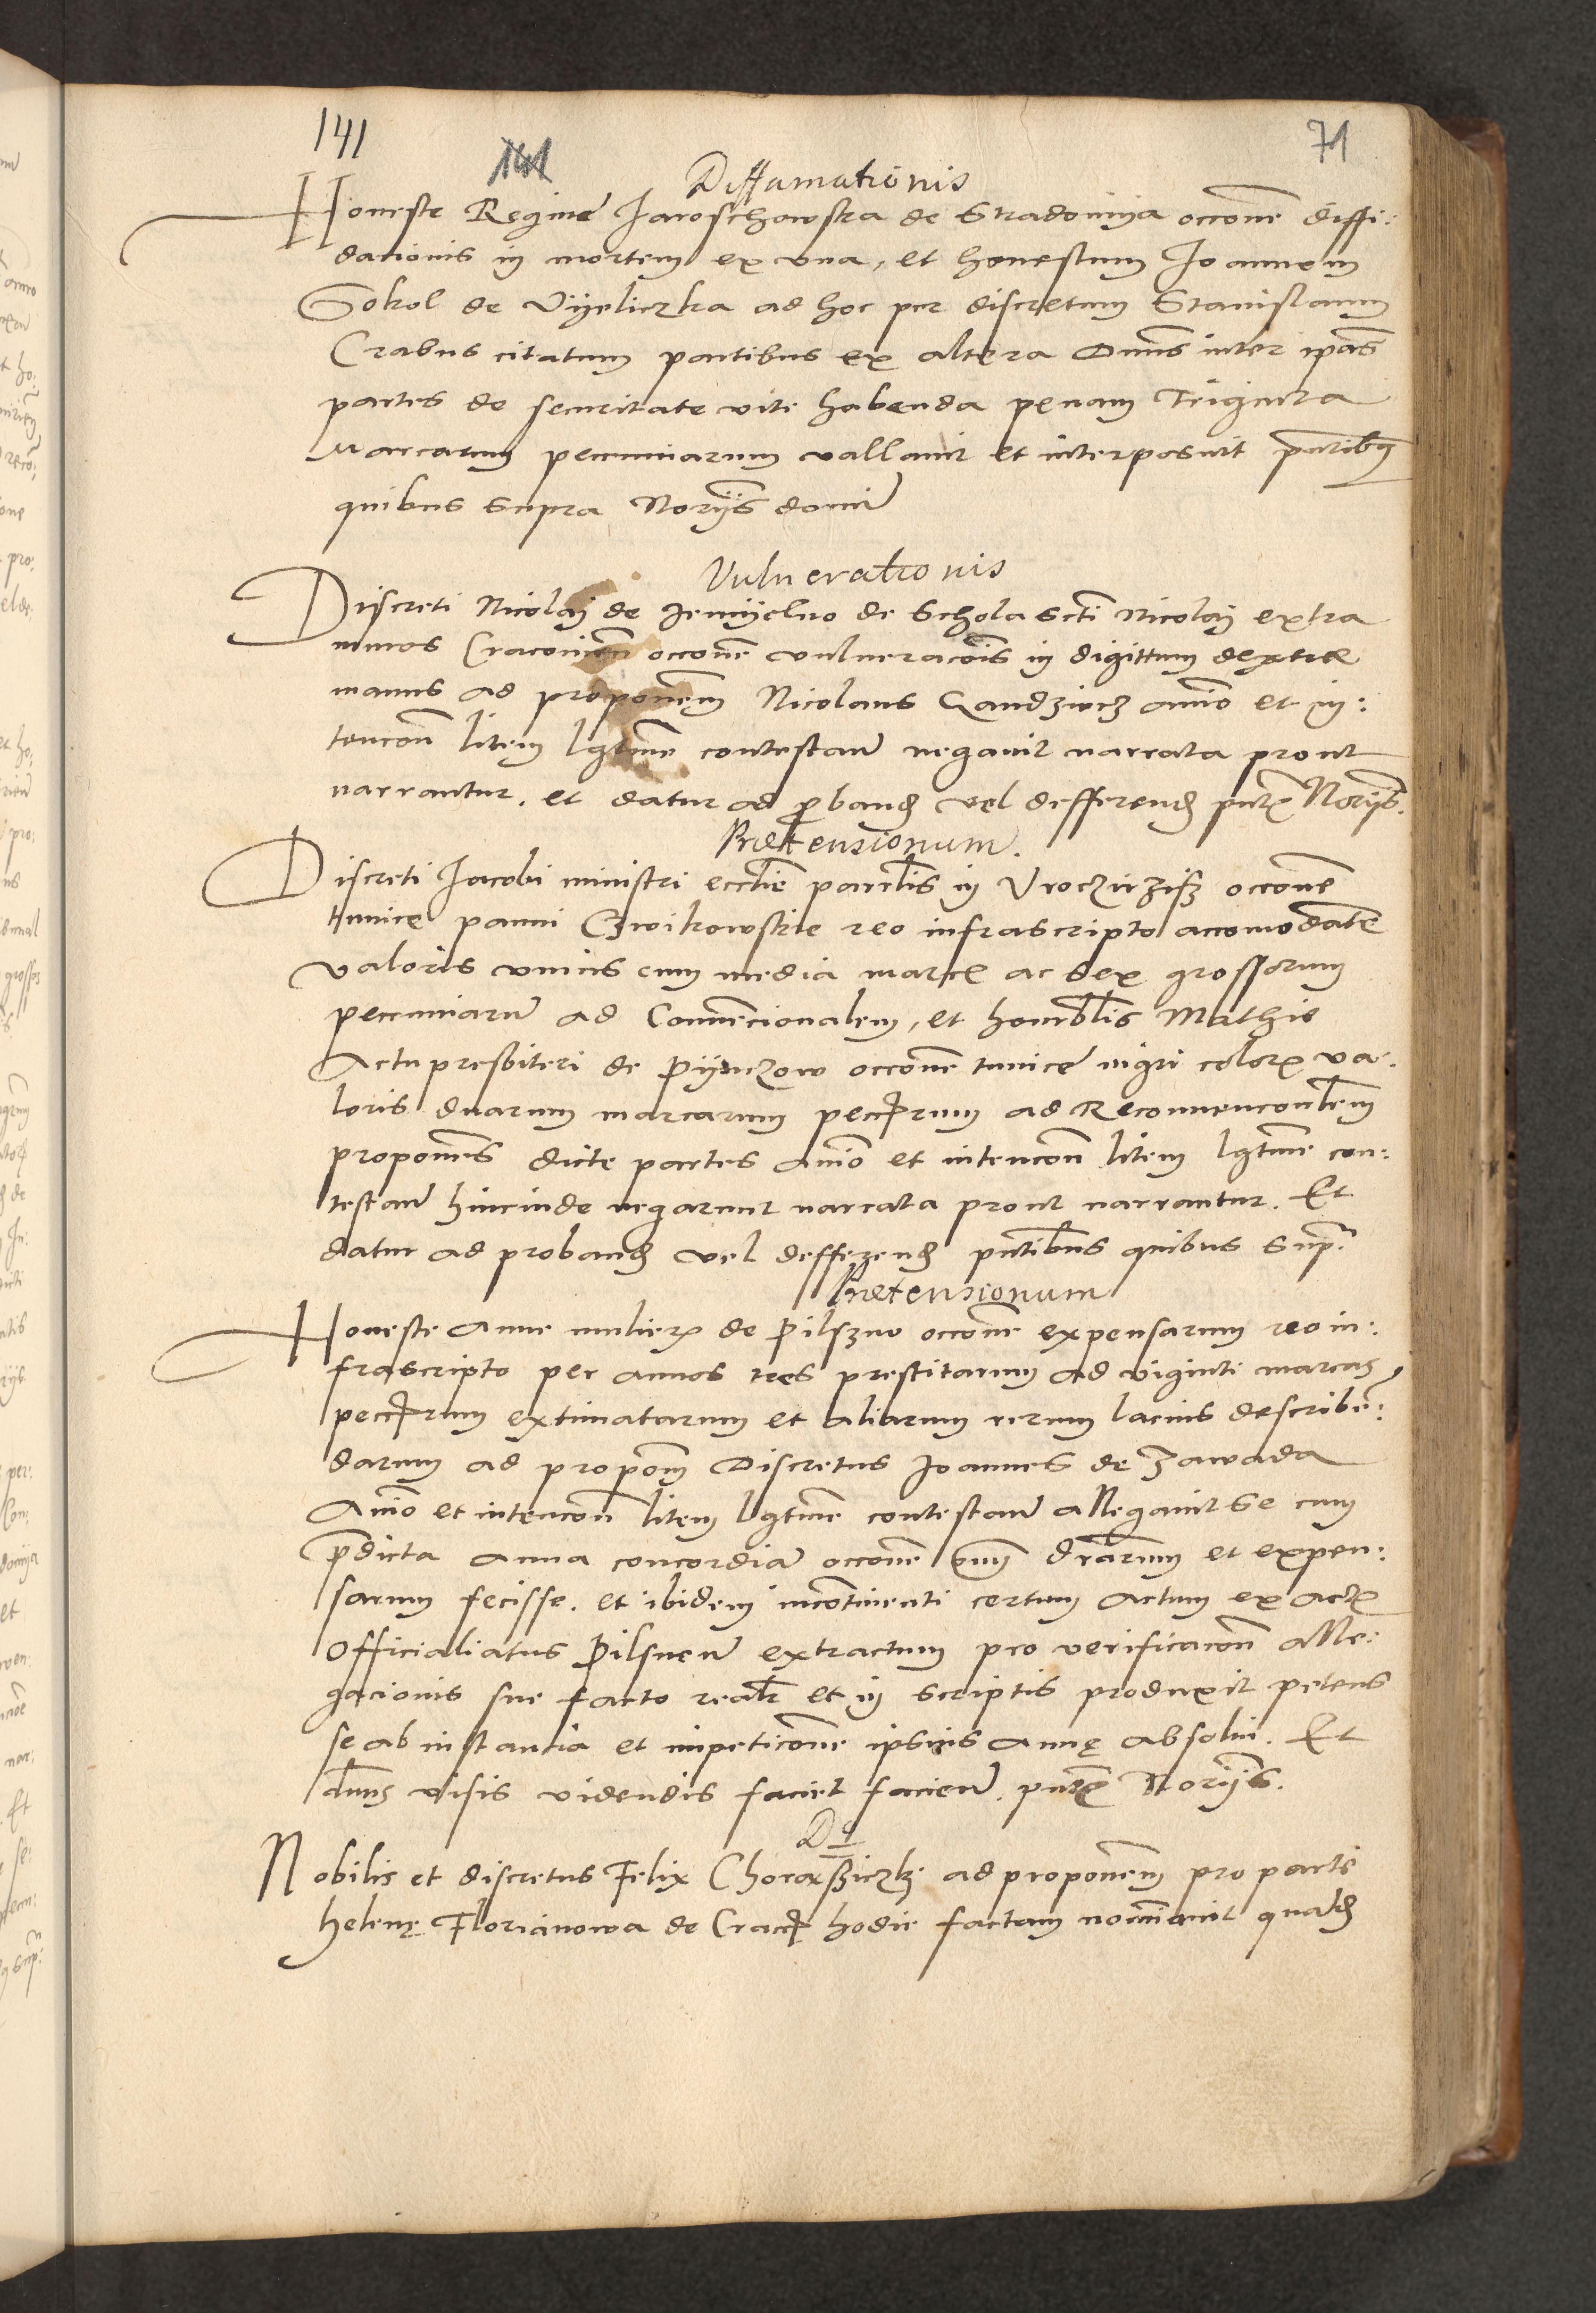 141
141
71
Diffamationis
Honeste Regine Jaroschowska de Stradomya occone diffi:
dationis in mortem ex una, et honestum Joannem
Sokol de Vyeliczka ad hoc per discretum Stanislaum
Crabus citatum partibus ex altera Dnus inter ipas
partes de securitate vite habenda penam Triginta
marcarum pecuniarum vallavit et interposuit pntibus
quibus supra Noryis domi
Vulnerationis
Discreti Nicolaj de de Schola Scti Nicolaj extra
muros Cracovien occone vulneracois in digittum dextre
manus ad proponem Nicolaus Gandziecz animo et in:
tencon litem lgtime contestan negavit narrata prout
narrantur. et datur ad proband vel defferend pnt Noryis.
Prætensionum.
Discreti Jacobi ministri ecclie parrlis in occone
tunice panni Czwikowskie reo infrascripto accomodate
valoris unius cum media marce ac sex grossorum
pecuniaru ad Convencionalem, et honorblis Mathie
Actu presbiteri de Pynczow occone tunice nigri color va:
loris duarum marcarum peccrum ad Reconvenconlem
propones dicte partes animo et intencon litem lgtime con:
testan hincinde negarunt narrata prout narrantur. Et
datur ad proband vel defferend pntibus quibus supr
Prætensionum
Honeste Anne mulier de Pilszno occone expensarum reo in:
frascripto per annos tres prestitarum ad viginti marcas
peccrum extimatarum et aliarum rerum lacius describen:
darum ad propoem Discretus Joannes de Zawada
Animo et intencon litem lgtime contestan allegavit se cum
pdicta Anna concordiam occone oim drarum et expen:
sarum fecisse. et ibidem incontinenti certum actum ex act
Officialiatus Pilsnen extractum pro verificacon alle:
gacionis sue facto realr et in scriptis produxit petens
se ab instantia et impeticone ipsius Annę absolvi. Et
dnus visis videndis faciet facien. pnt Noryis.
Do
Nobilis et discretus Felix ad proponem pro parte
helenę Florianowa de Crac hodie factam nominavit quasd